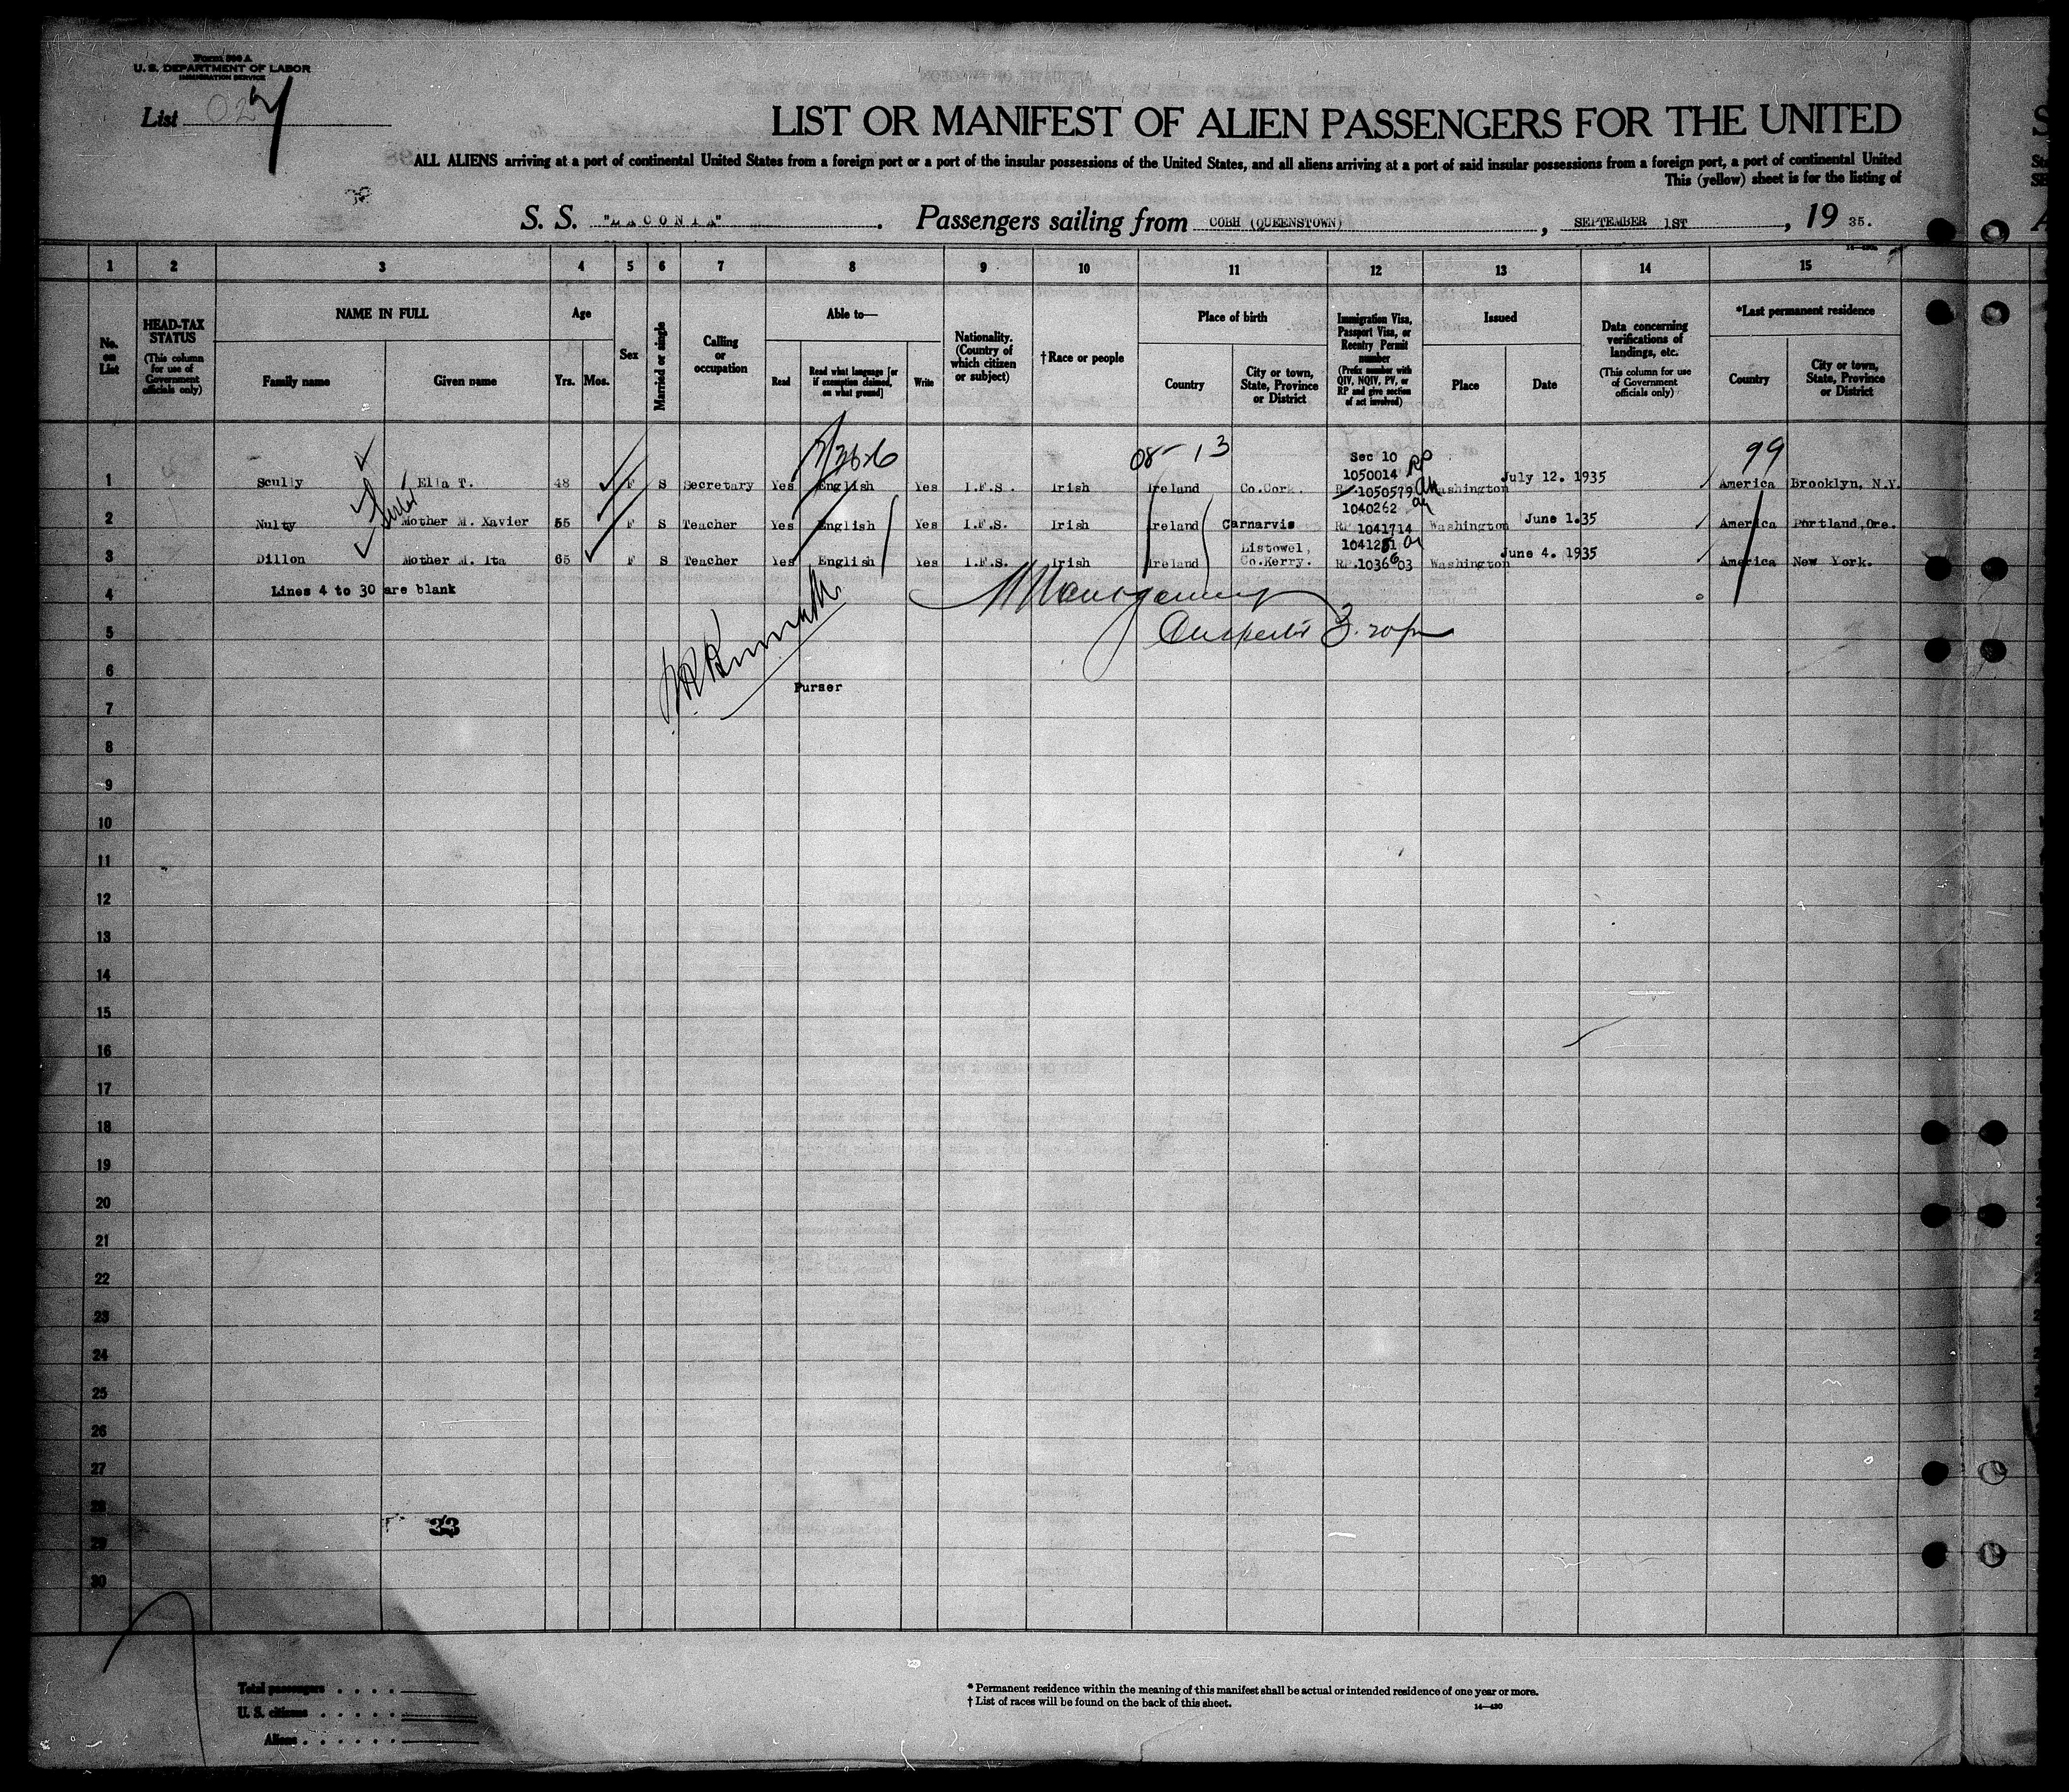 Form 500 A
U. S. DEPARTMENT OF LABOR
IMMIGRATION SERVICE
List
LIST OR MANIFEST OF ALIEN PASSENGERS FOR THE UNITED
ALL ALIENS arriving at a port of continental United States from a foreign port or a port of the insular possessions of the United States, and all aliens arriving at a port of said insular possessions from a foreign port, a port of continental United
This (yellow) sheet is for the listing of
S. S. "LACONIA". Passengers sailing from COBH (QUEENSTOWN), SEPTEMBER 1ST, 19 35.
1 2 3 4 5 6 7 8 9 10 11 12 13 14 15
No. on List
HEAD-TAX STATUS (This column for use of Government officials only)
NAME IN FULL
Family name
Given name
Age
Yrs. Mos.
Sex
Married or single
Calling or occupation
Able to—
Read
Read what language [or if exemption claimed, on what ground]
Write
Nationality. (Country of which citizen or subject)
† Race or people
Place of birth
Country
City or town, State, Province or District
Immigration Visa, Passport Visa, or Reentry Permit number (Prefix number with QIV, NQIV, PV, or RP and give section of act involved)
Issued
Place
Date
Data concerning verifications of landings, etc. (This column for use of Government officials only)
*Last permanent residence
Country
City or town, State, Province or District
08- 13 99
Sec 10
1050014 RP
1 Scully Ella T. 48 F S Secretary Yes English Yes I.F.S. Irish Ireland Co.Cork. RP 1050579 Washington July 12. 1935 America Brooklyn, N.Y.
1040262
2 Nulty Mother M. Xavier 55 F S Teacher Yes English Yes I.F.S. Irish Ireland Carnarvis RP 1041714 Washington June 1.35 America Portland,Ore.
3 Dillon Mother M. Ita 65 F S Teacher Yes English Yes I.F.S. Irish Ireland Listowel, Co.Kerry. RP.1036603 Washington June 4. 1935 America New York.
4 Lines 4 to 30 are blank
5
6
Purser
7
8
9
10
11
12
13
14
15
16
17
18
19
20
21
22
23
24
25
26
27
28
33
29
30
Total passengers . . . .
U. S. citizens . . . . .
Aliens . . . . . .
* Permanent residence within the meaning of this manifest shall be actual or intended residence of one year or more.
† List of races will be found on the back of this sheet.
14—430